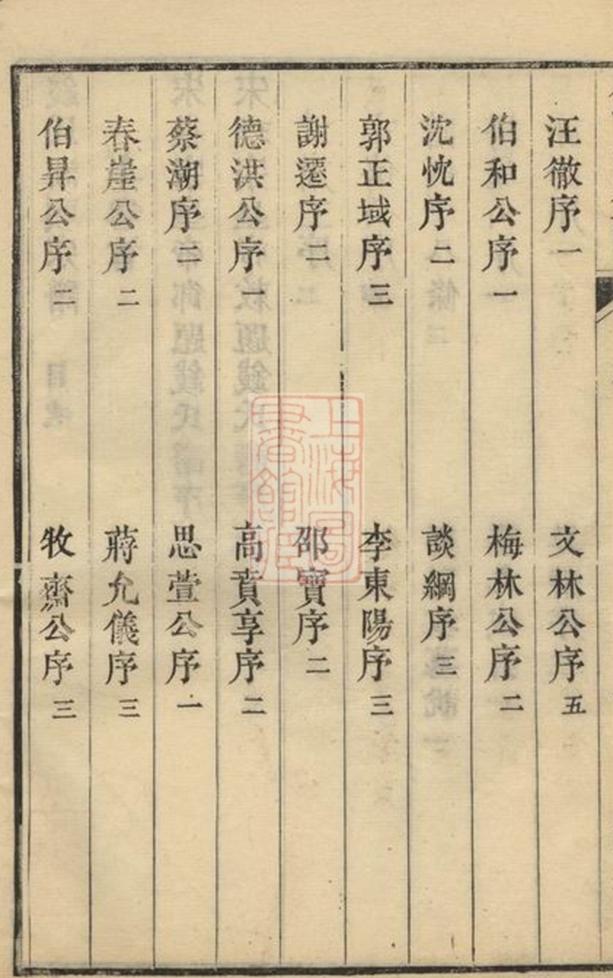 汪徹序一 文林公序五
伯和公序一 梅林公序二
沈忱序二 談綱序三
郭正域序三 李東陽序三
謝遷序二 邵寶序二
德洪公序一 高賁亨序二
蔡潮序二 思萱公序一
春崖公序二 蔣允儀序三
伯昇公序二 牧齋公序三
上海圖書館藏